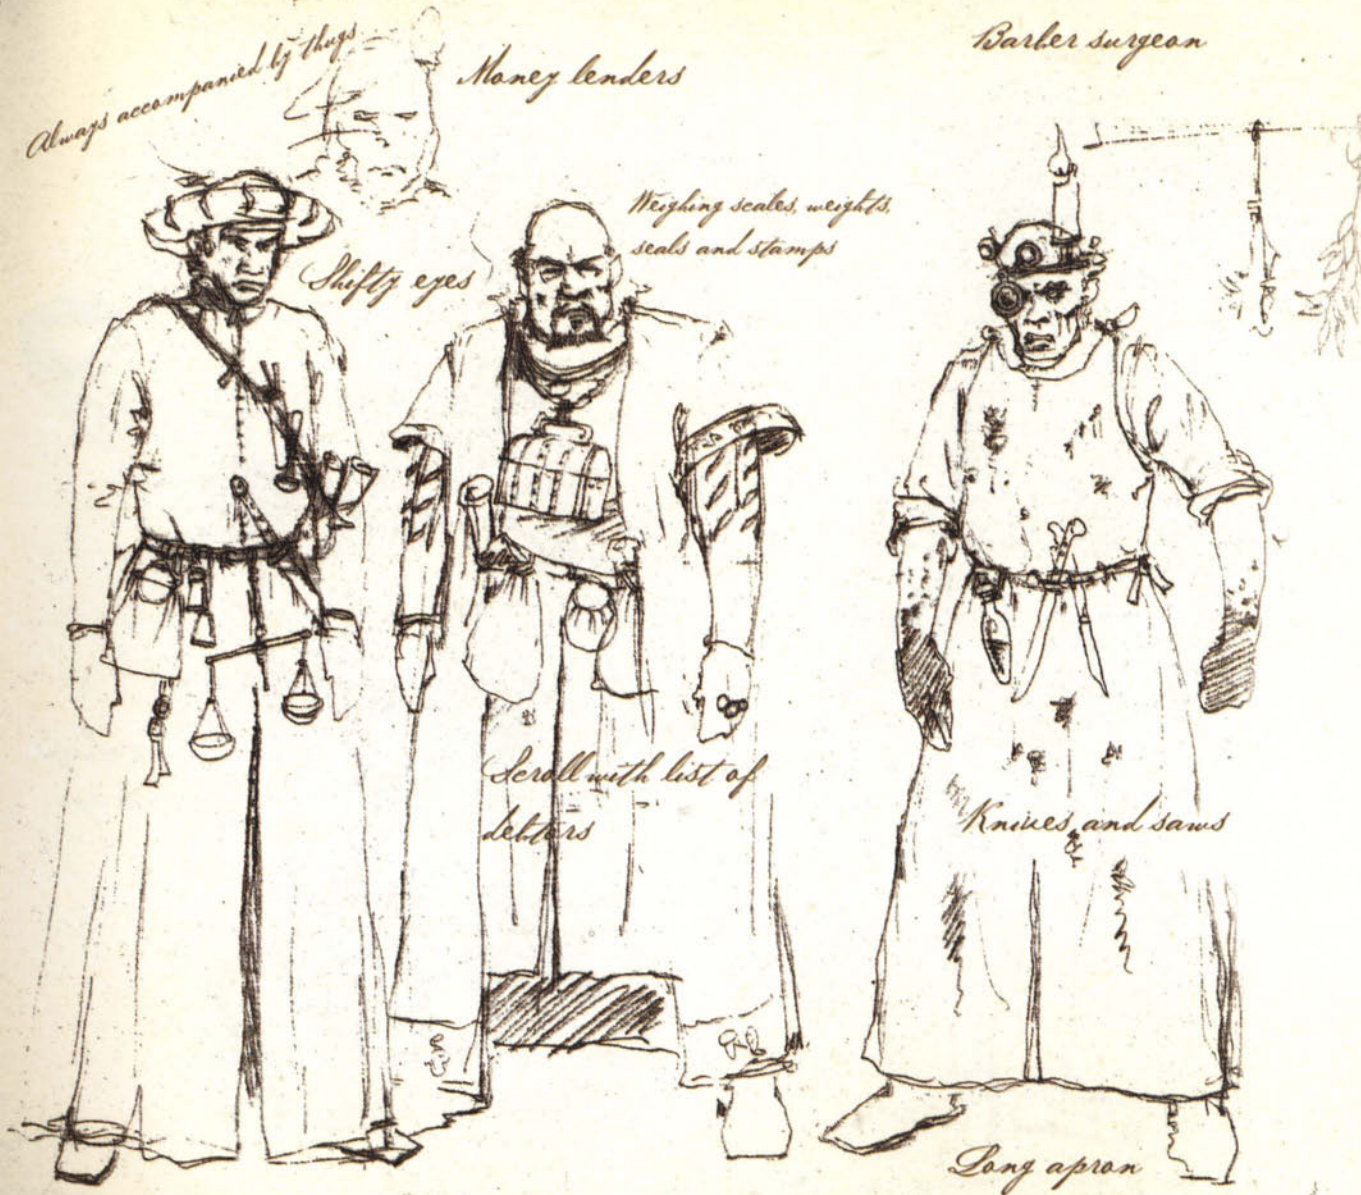 Always accompanied by thugs
Money lenders
Barber surgeon
Weighing scales, weights,
seals and stamps
Shifty eyes
Scroll with list of
debters
Knives and saws
Long apron